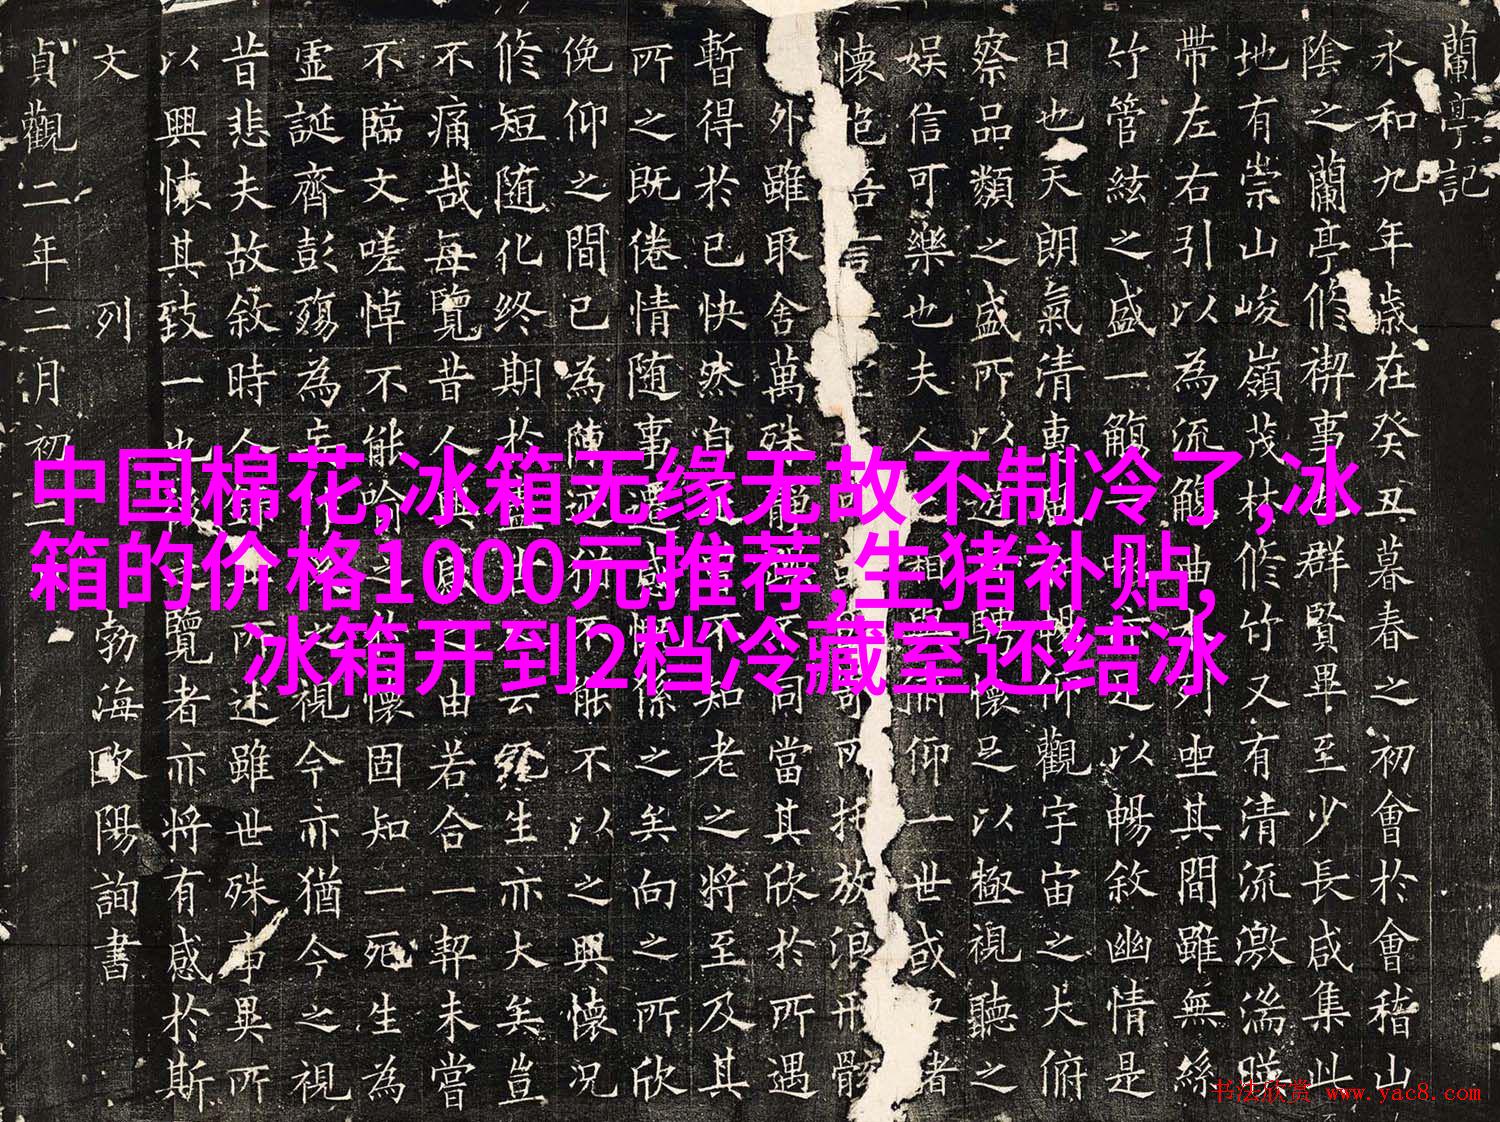 中国棉花,冰箱无缘无故不制冷了,冰
箱的价格1000元推荐,生猪补贴,
冰箱开到2档冷藏室还结冰
蘭亭記
永和九年歲在癸丑暮春之初會於會稽山
陰之蘭亭修禊事群賢畢至少長咸集此
地有崇山峻嶺茂林修竹又有清流激湍暎
帶左右引以為流觴曲列坐其間雖無絲
竹管絃之盛一觴以暢敘幽情是
日也天朗氣清惠暢仰觀宇宙之大俯
察品類之盛所以遊騁懷足以極視聽之
娛信可樂也夫人相與俯仰一世或取諸
懷抱悟言室寄所托放浪形骸
外雖取舍萬殊靜躁不同當其欣於所遇
暫得於已快然自足不知老之將至及其
所之既倦情随事遷感慨係之矣向之所欣
俛仰之間已為陳迹能不以之興懷況
修短随化終期於盡云死生亦大矣豈
不痛哉每覽昔人興感之由若合一契未嘗
不臨文嗟悼不能喻懷固知一死生為
虛誕齊彭殤為妄視今亦猶今之視
昔悲夫故敘時人所述雖世殊事異所
以興懷其致一也覽者亦將有感於斯
文
列
勃海歐陽詢書
貞觀二年二月初三
書法欣赏 www.yac8.com